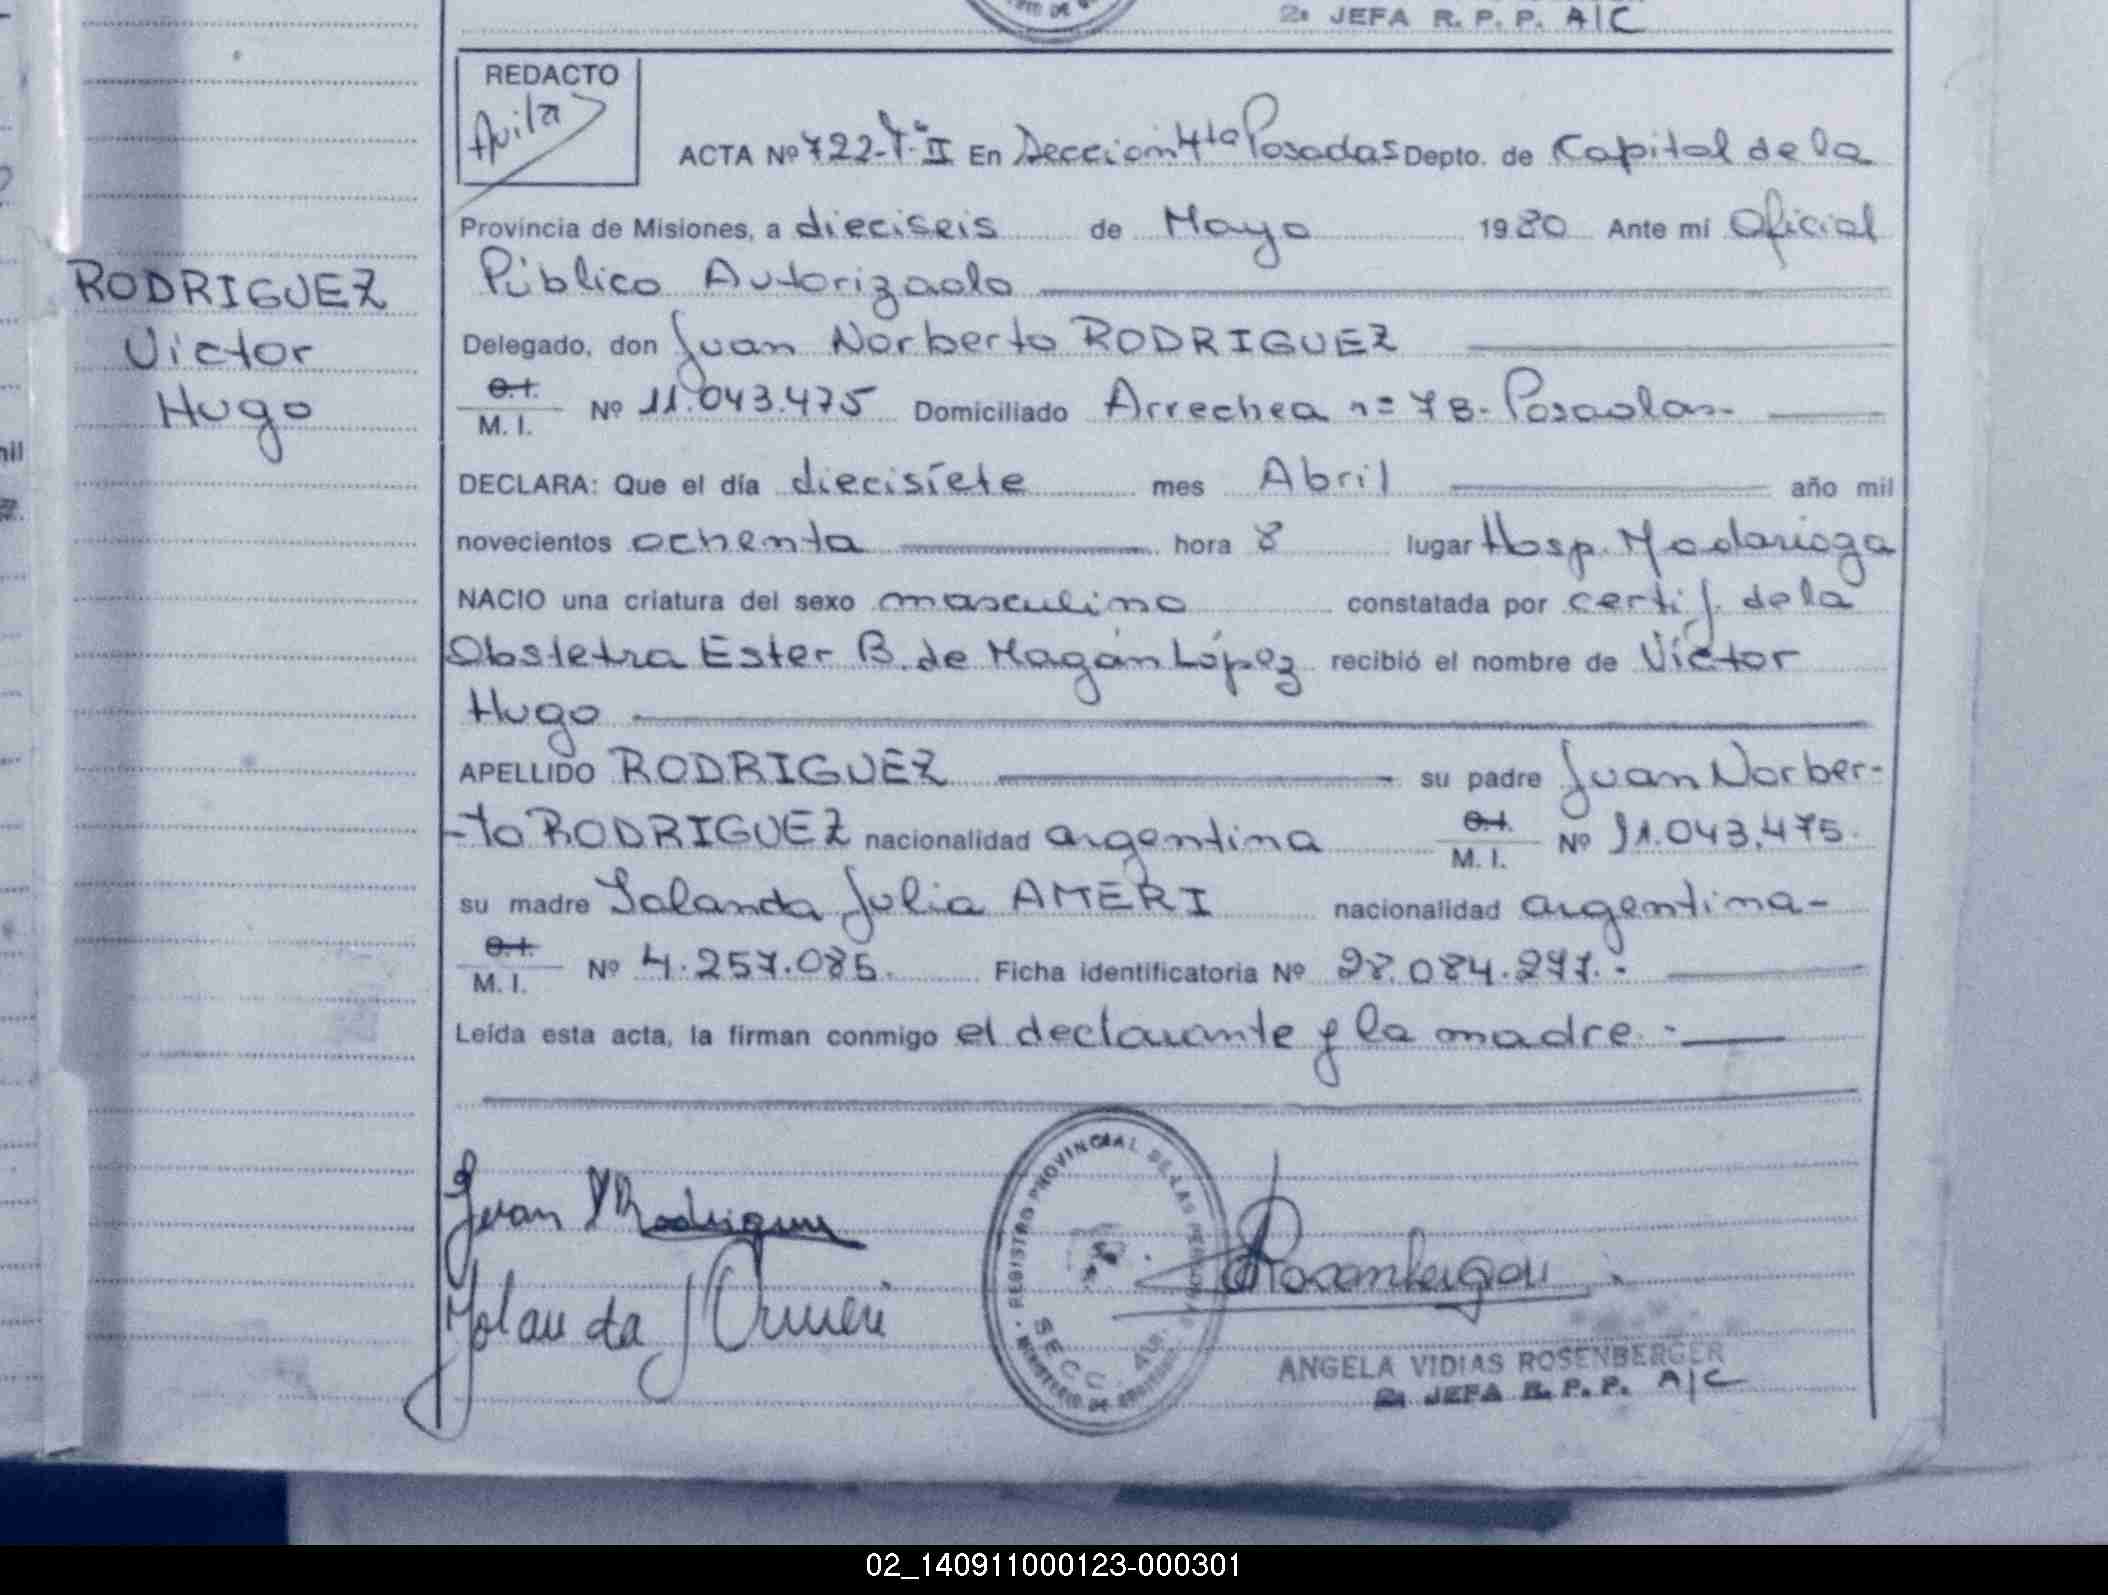 2ª JEFA R. P. P. A/C
REDACTO
Avila
ACTA Nº 722-Tº II En Sección 4ta Posadas Depto. de Capital de la
Provincia de Misiones, a dieciseis de Mayo 1980 Ante mí Oficial
Público Autorizado
Delegado, don Juan Norberto RODRIGUEZ
C.I.
M. I. Nº 11.043.475 Domiciliado Arrechea nº 78-Posadas-
DECLARA: Que el día diecisiete mes Abril año mil
novecientos ochenta hora 8 lugar Hosp. Madariaga
NACIO una criatura del sexo masculino constatada por certif. de la
Obstetra Ester B. de Magán López recibió el nombre de Víctor
Hugo
APELLIDO RODRIGUEZ su padre Juan Norber-
-to RODRIGUEZ nacionalidad argentina C.I.
M. I. Nº 11.043.475.
su madre Iolanda Julia AMERI nacionalidad argentina-
C.I.
M. I. Nº 4.257.085. Ficha identificatoria Nº 28.084.277.-
Leída esta acta, la firman conmigo el declarante y la madre.-
RODRIGUEZ
Victor
Hugo
mil
Juan N Rodriguez
Yolanda J Ameri
REGISTRO PROVINCIAL DE LAS PERSONAS
SECC. 4ta.
MINISTERIO DE GOBIERNO
ANGELA VIDIAS ROSENBERGER
2ª JEFA R. P. P. A/C
02_140911000123-000301